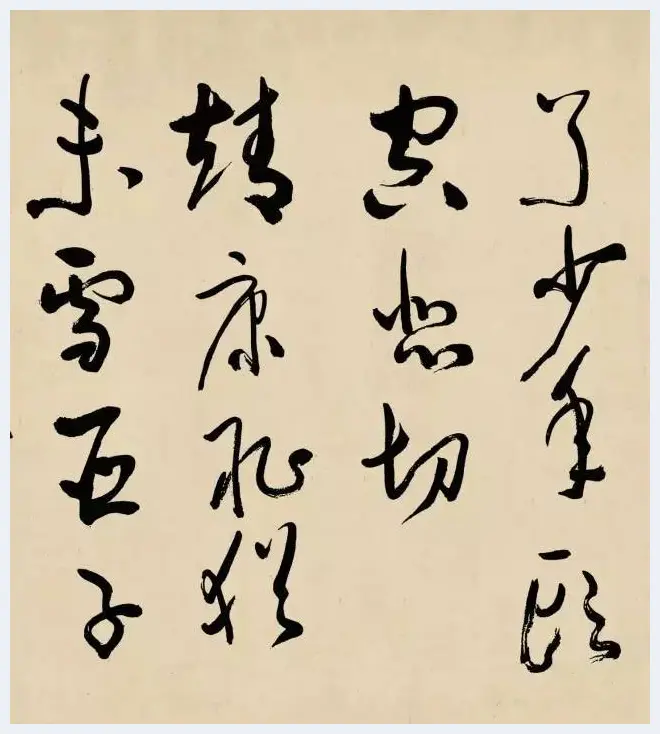 了少年頭
空悲切
靖康恥猶
未雪臣子